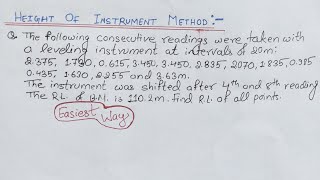 HEIGHT OF INSTRUMENT METHOD:-
Q. The following consecutive readings were taken with
a leveling instrument at intervals of 20m:
2.375, 1.730, 0.615, 3.450, 3.450, 2.835, 2070, 1.835, 0.985
0.435, 1.630, 2.255 and 3.63m.
The instrument was shifted after 4th and 8th reading
The R.L. of B.M. is 110.2m. Find R.L. of all points.
Easiest Way